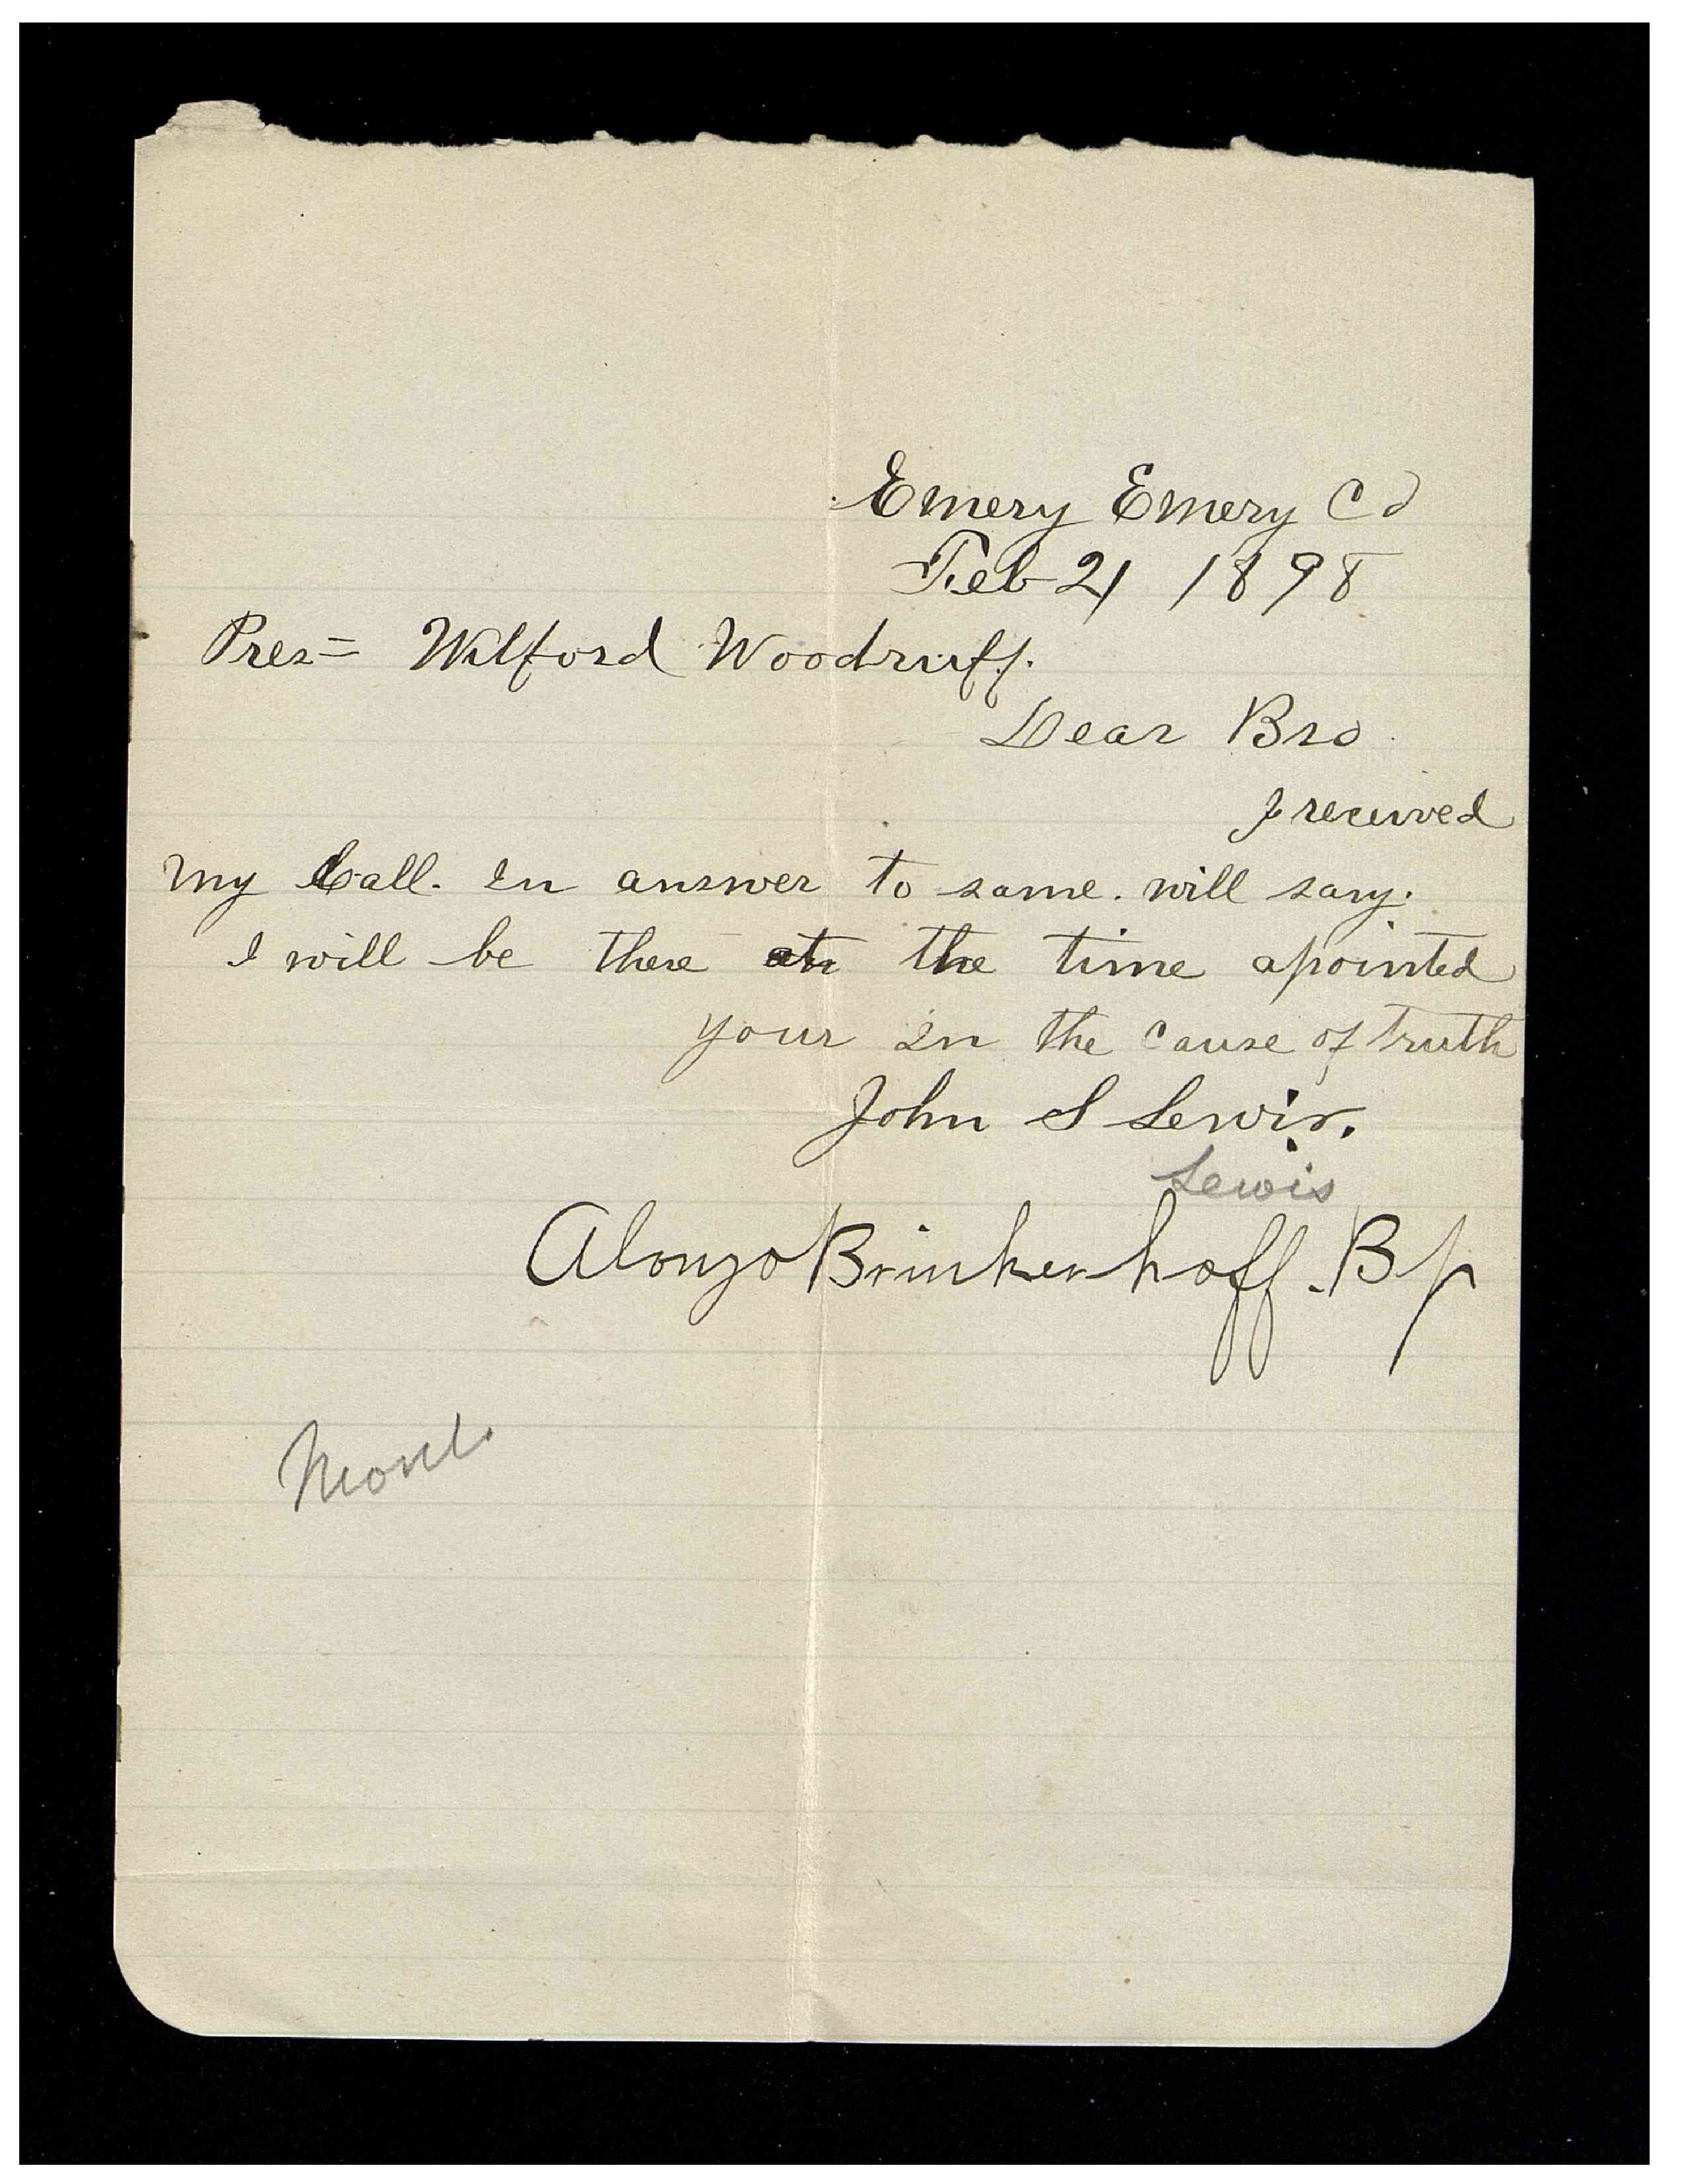 Emery Emery Co
Feb 21 1898
Pres= Wilford Woodruff.
Dear Bro
I received
my Call. In answer to same. will say.
I will be there at the time apointed
your in the cause of truth
John S Lewis.
Lewis
Alonzo Brinkerhoff. Bp